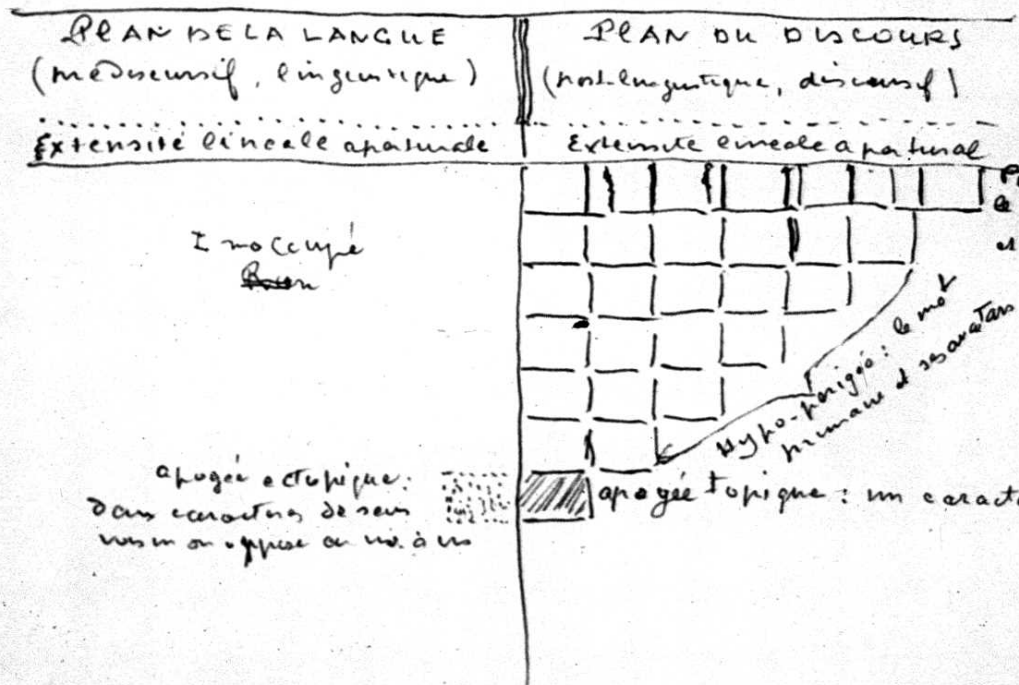 PLAN DE LA LANGUE
(prédiscursif, linguistique)
Extensité linéale aparturale
Inoccupé
apogée ectopique:
deux caractères de sens
voisin ou opposé
PLAN DU DISCOURS
(post-linguistique, discursif)
Extensité linéale apartural
Hypo-périgée: le mot
primaire et ses avatars
apogée topique: un caract